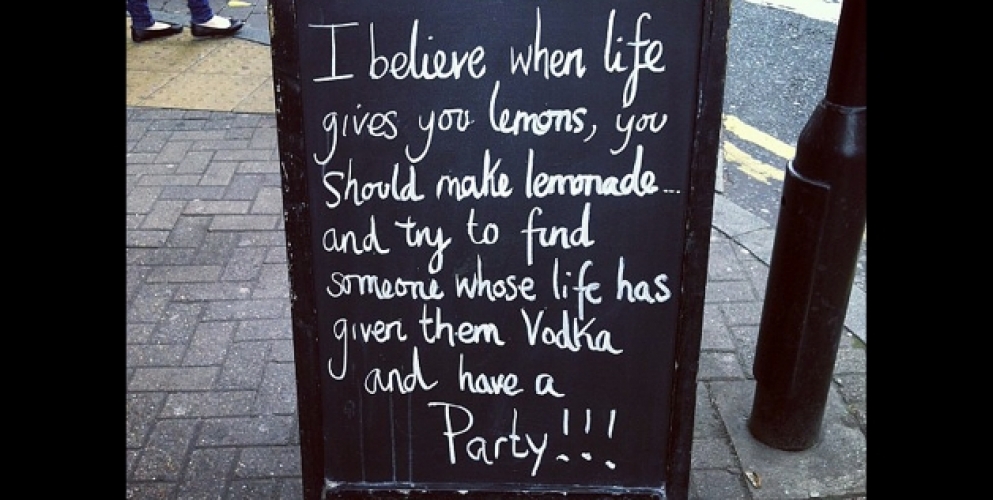 I believe when life
gives you lemons, you
should make lemonade...
and try to find
someone whose life has
given them Vodka
and have a
Party!!!